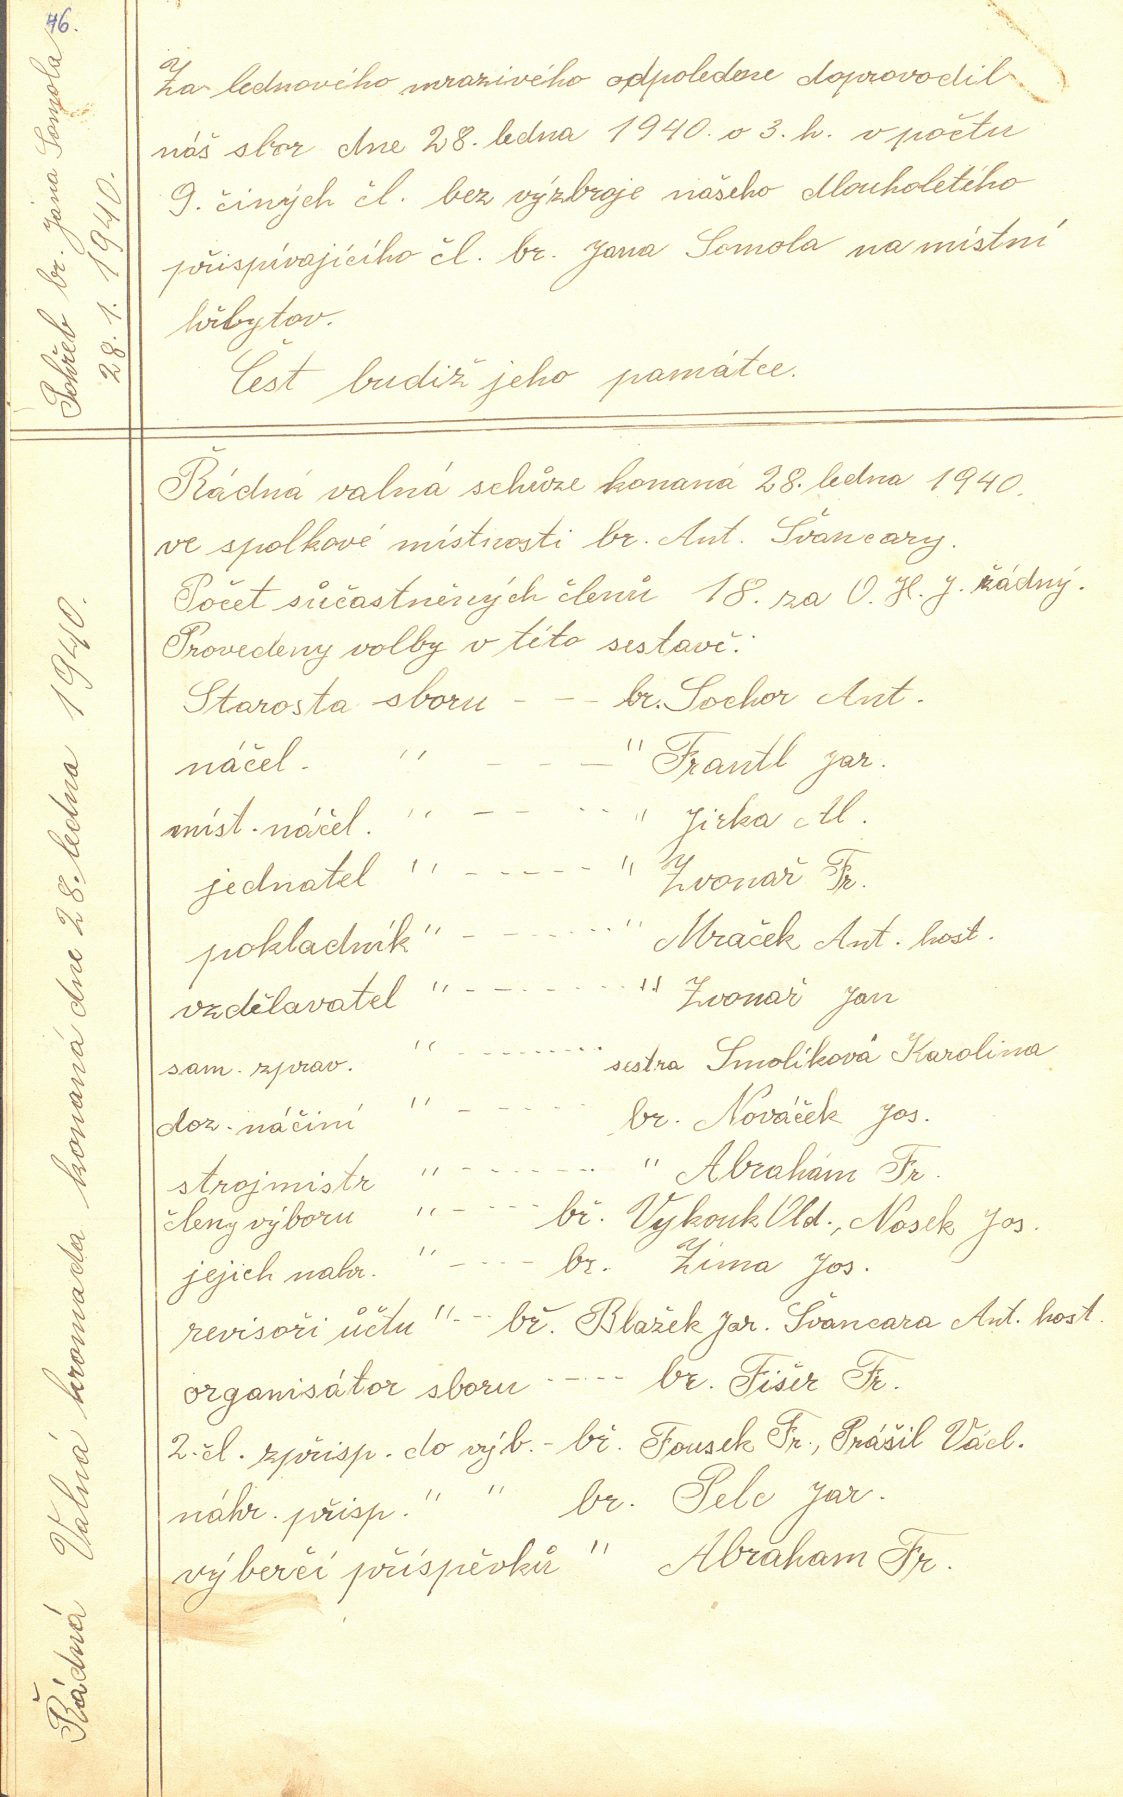 46.
Pohřeb br. Jana Somola
28. 1. 1940.
Za lednového mrazivého odpoledne doprovodil
náš sbor dne 28. ledna 1940. o 3. h. v počtu
9. činých čl. bez výzbroje našeho dlouholetého
přispívajícího čl. br. Jana Somola na místní
hřbytov.
Čest budiž jeho památce.
Řádná Valná hromada konaná dne 28. ledna 1940.
Řádná valná schůze konaná 28. ledna 1940.
ve spolkové místnosti br. Ant. Švancary.
Počet súčastněných členů 18. za O. H. J. žádný.
Provedeny volby v této sestavě:
Starosta sboru - - - br. Sochor Ant.
náčel. " - - - " Frantl Jar.
míst. náčel. " - - - - " Jirka Al.
jednatel " - - - - - " Zvonař Fr.
pokladník " - - - - - " Mraček Ant. host.
vzdělavatel " - - - - - - " Zvonař Jan
sam. zprav. " - - - - - - - sestra Smolíková Karolina
doz. náčiní " - - - - - br. Nováček Jos.
strojmistr " - - - - - - " Abrahám Fr.
členy výboru " - - - - bř. Vykouk Old., Nosek Jos.
jejich nahr. " - - - - br. Zima Jos.
revisoři účtu " - - bř. Blažek Jar. Švancara Ant. host.
organisátor sboru - - - - br. Fišer Fr.
2. čl. zpřisp. do výb. - bř. Fousek Fr., Prášil Václ.
náhr. přisp. " " br. Pelc Jar.
výberčí příspěvků " Abraham Fr.